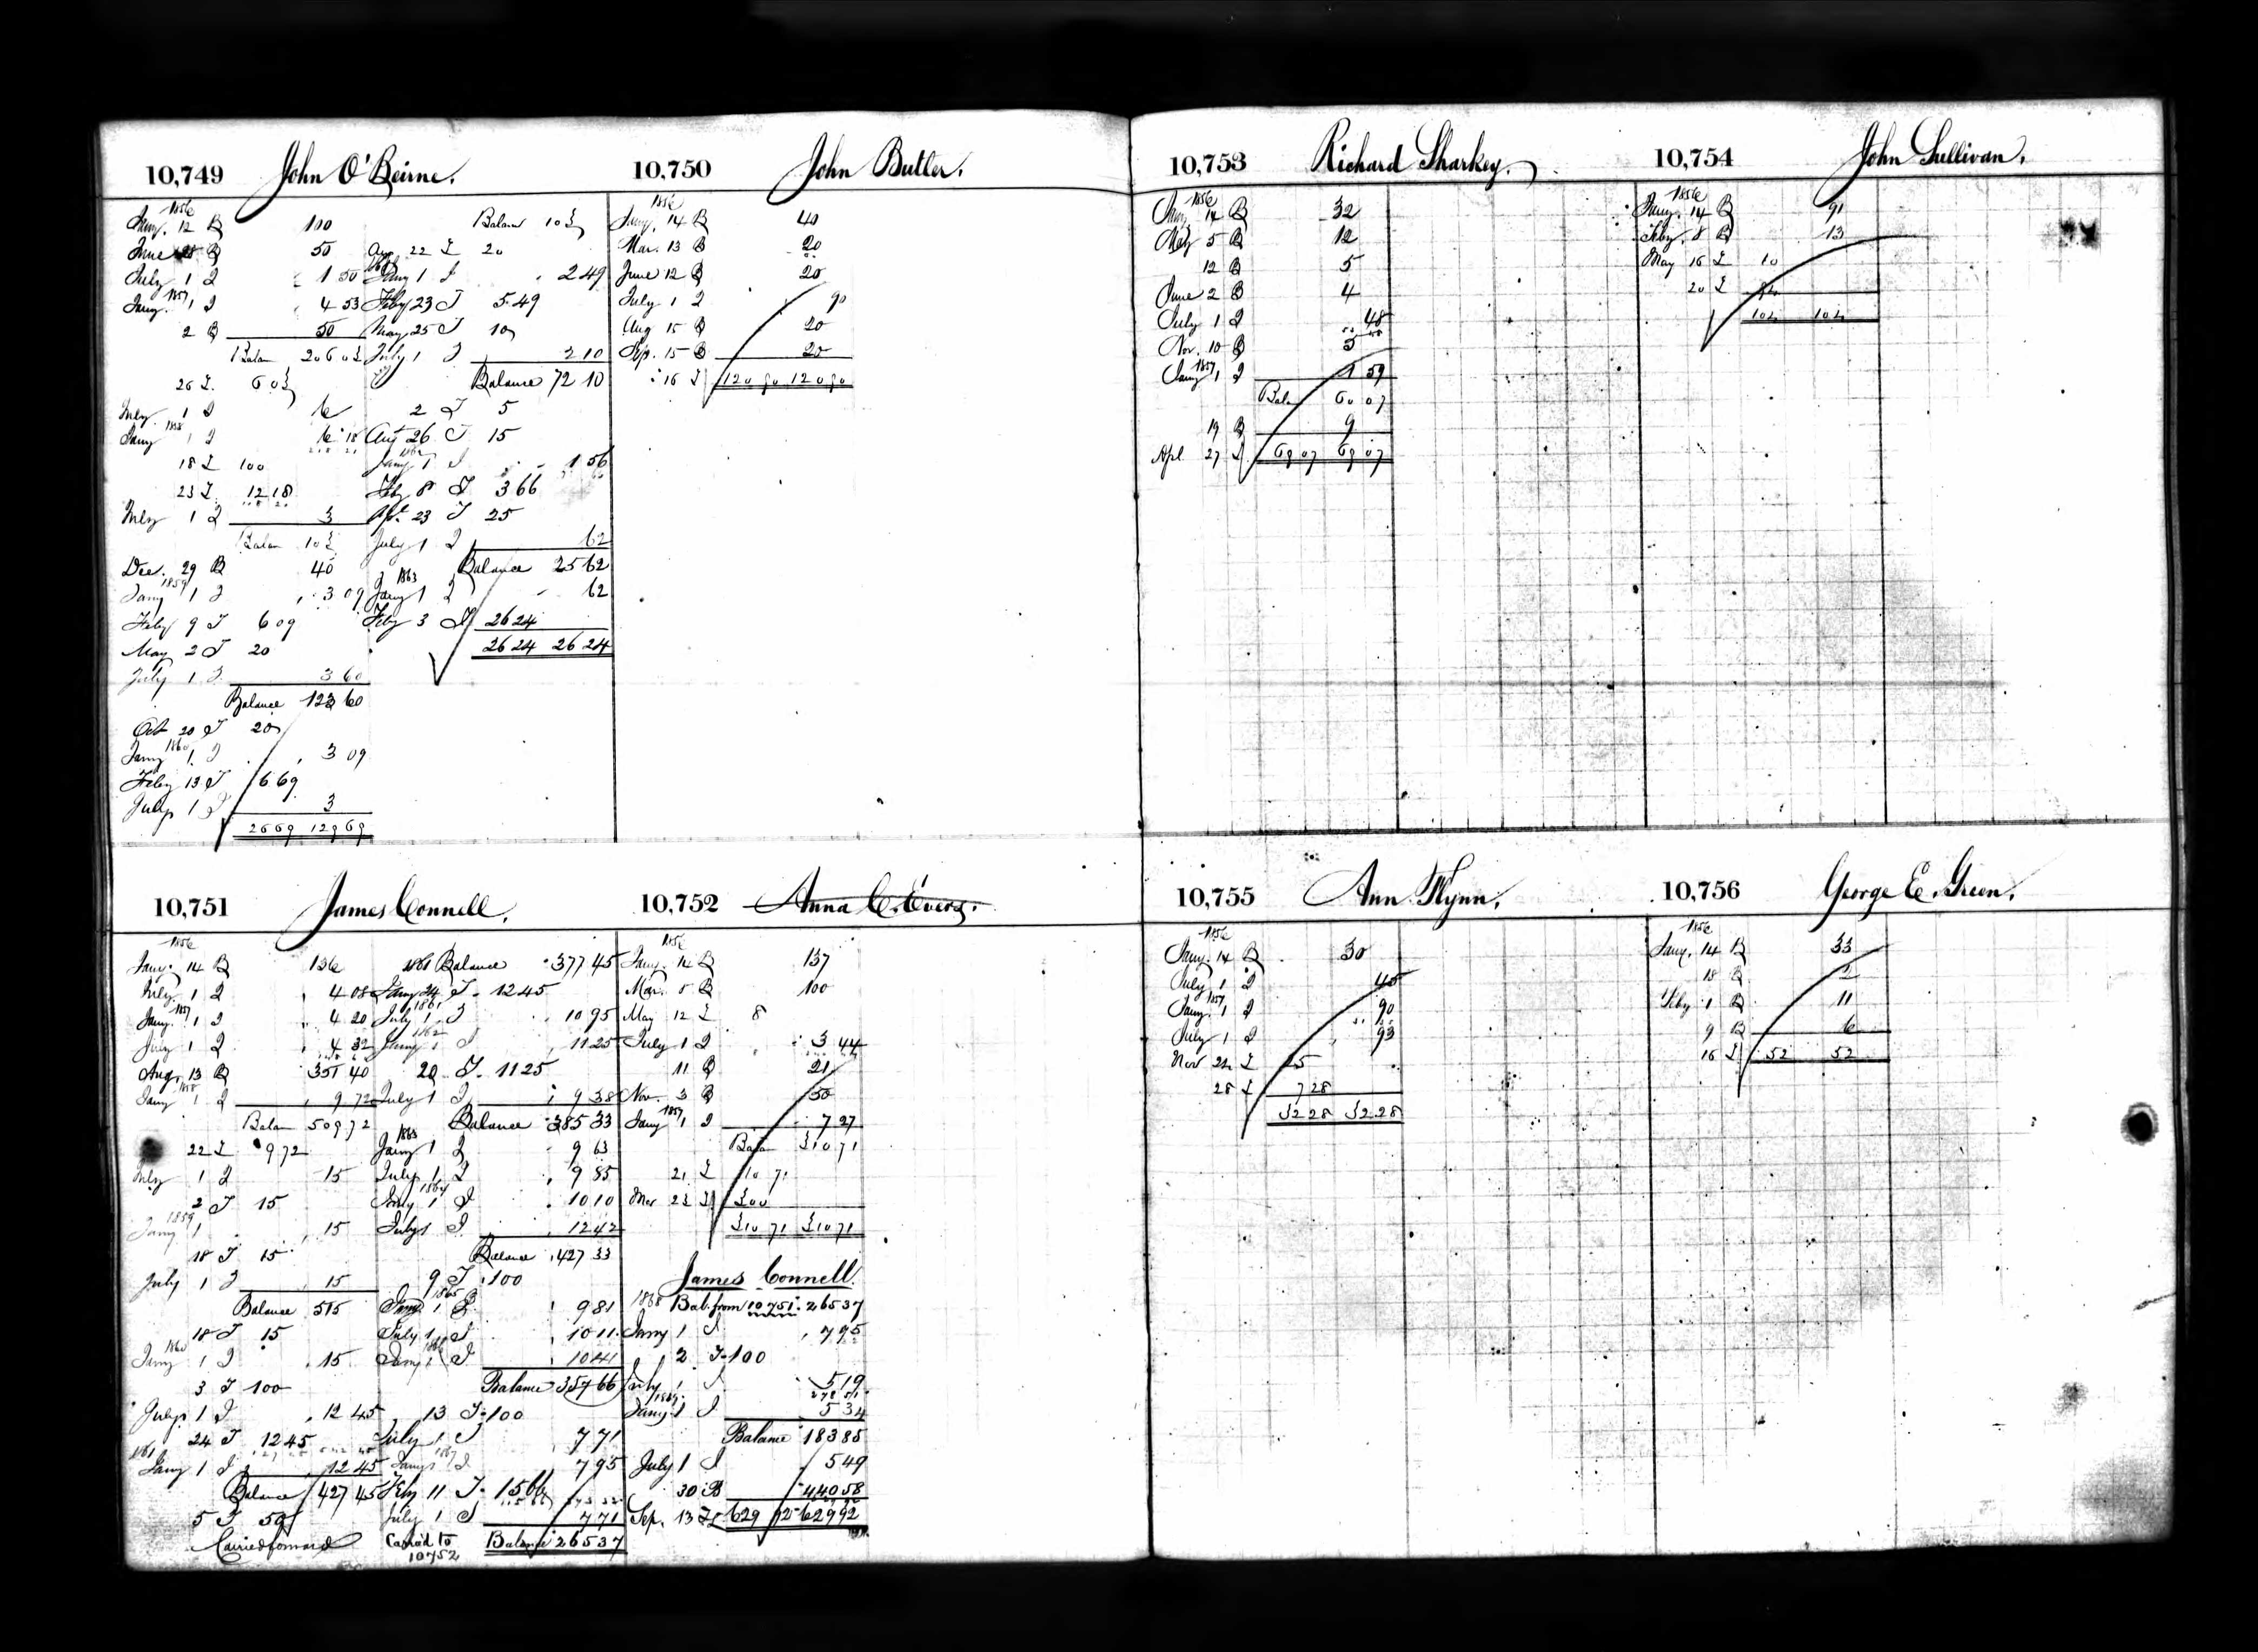 10,749 John O'Beirne.
1856
Jany. 12 B 100
June 28 B 50
July 1 I 1 50
1857
Jany. 1 I 4 53
2 B 50
Balan 206 03
26 I 6 03
July 1 I 6
1858
Jany 1 I 6 18
18 I 100
23 I 12 18
July 1 I 3
Balan 103
Dec. 29 B 40
1859
Jany 1 I 3 09
Feby 9 I 6 09
May 2 I 20
July 1 I 3 60
Balance 123 60
Oct 20 I 20
1860
Jany 1 I 3 09
Feby 13 I 6 69
July 1 I 3
26 69 129 69
Balan 103
Aug 22 I 20
Jany 1 I 2 49
Feby 23 I 5 49
May 25 I 10
July 1 I 2 10
Balance 72 10
2 I 5
Aug 26 I 15
1862
Jany 1 I 1 56
Feby 8 I 3 66
Apl. 23 I 25
July 1 I 62
Balance 25 62
1863
Jany 1 I 62
Feby 3 I 26 24
26 24 26 24
10,750 John Butler.
1856
Jany. 14 B 40
Mar. 13 B 20
June 12 B 20
July 1 I 90
Aug 15 B 20
Sep. 15 B 20
16 I 120 90 120 90
10,751 James Connell.
1856
Jany. 14 B 136
July 1 I 4 08
1857
Jany. 1 I 4 20
July 1 I 4 32
Aug. 13 B 351 40
1858
Jany 1 I 9 72
Balan 509 72
22 I 9 72
July 1 I 15
2 I 15
1859
Jany 1 15
18 I 15
July 1 I 15
Balance 515
18 I 15
1860
Jany 1 I 15
3 I 100
July 1 I 12 45
24 I 12 45
1861
Jany 1 I 12 45
Balance 427 45
5 I 50
Carried forward
1861 Balance 377 45
Jany 24 I 12 45
1861
July 1 I 10 95
1862
Jany 1 I 11 25
20 I 11 25
July 1 I 9 38
Balance 385 33
1863
Jany 1 I 9 63
July 1 I 9 85
1864
Jany 1 I 10 10
July 1 I 12 42
Balance 427 33
9 I 100
1865
Jany 1 I 9 81
July 1 I 10 11
1866
Jany 1 I 10 41
Balance 357 66
13 I 100
July 1 I 7 71
1867
Jany 1 I 7 95
Feby 11 I 15 66
July 1 I 7 71
Carried to 10752 Balance 265 37
10,752 Anna C. Evers.
1856
Jany. 14 B 137
Mar. 5 B 100
May 12 I 8
July 1 I 3 44
11 B 21
Nov. 3 B 50
1857
Jany 1 I 7 27
Balan 310 71
21 I 10 71
Mar 23 I 300
310 71 310 71
James Connell.
1868 Bal. from 10751 265 37
Jany 1 I 7 95
2 I 100
July 1 I 5 19
1869
Jany 1 I 5 34
Balance 183 85
July 1 I 5 49
30 B 440 58
Sep. 13 I 629 92 629 92
10,753 Richard Sharkey.
1856
Jany 14 B 32
May 5 B 12
12 B 5
June 2 B 4
July 1 I 48
Nov. 10 B 5
1857
Jany 1 I 1 59
Balan 60 07
19 B 9
Apl 27 I 69 07 69 07
10,754 John Sullivan.
1856
Jany. 14 B 91
Feby. 8 B 13
May 16 I 10
20 I 94
104 104
10,755 Ann Flynn.
1856
Jany. 14 B 30
July 1 I 45
1857
Jany. 1 I 90
July 1 I 93
Nov 24 I 25
28 I 7 28
32 28 32 28
10,756 George E. Green.
1856
Jany. 14 B 33
18 B 2
Feby 1 B 11
9 B 6
16 I 52 52